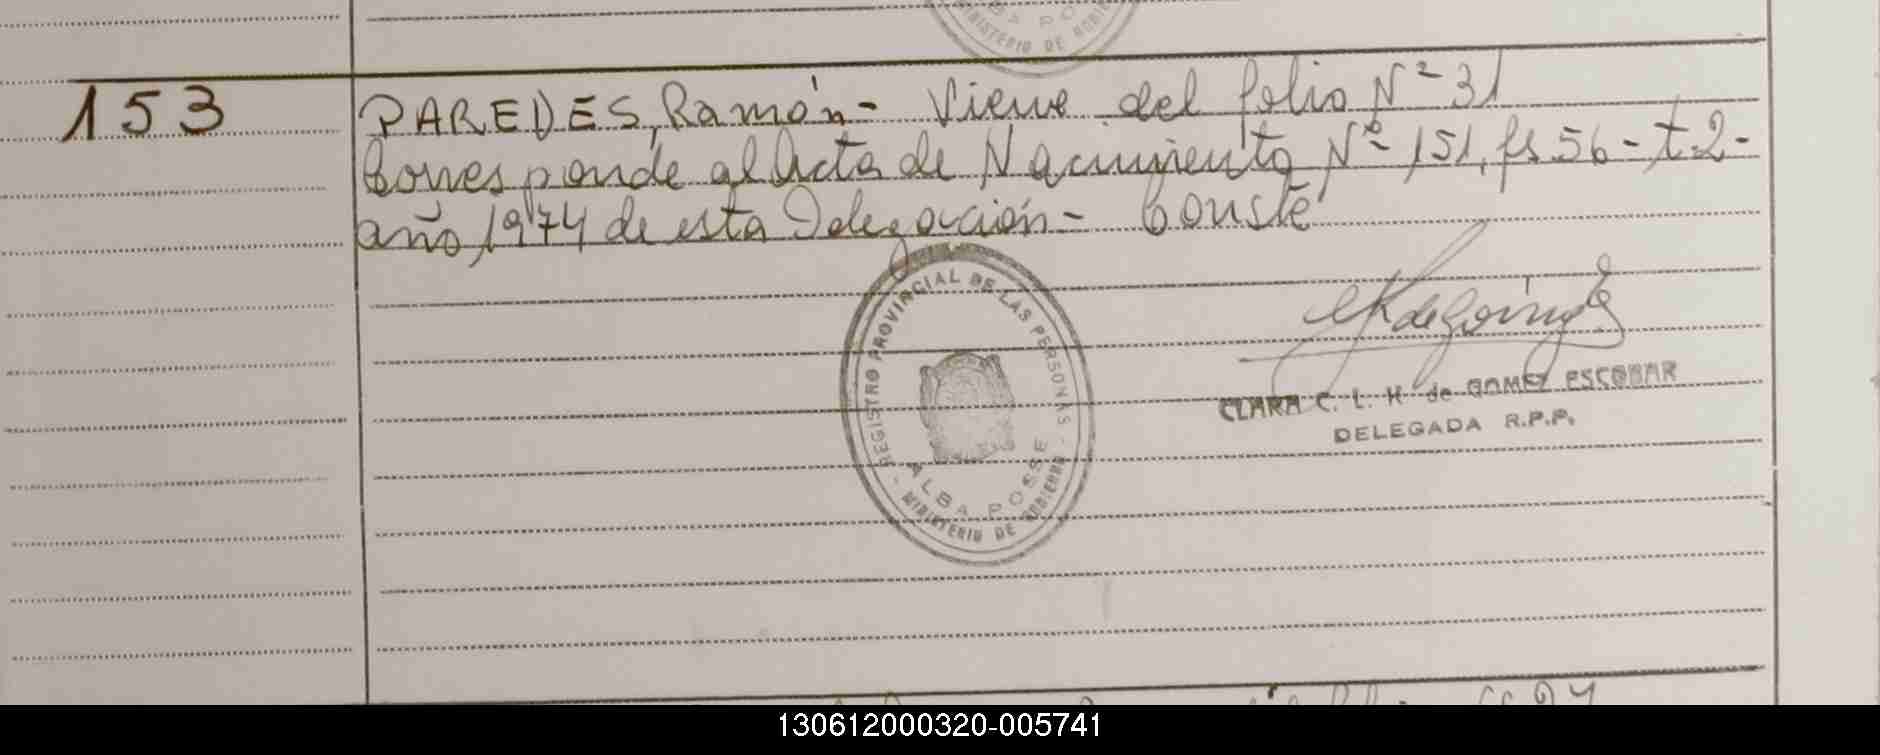 153
PAREDES, Ramón- Viene del folio Nº 31
Corresponde al Acta de Nacimiento Nº 151, fs 56 - t 2-
año, 1974 de esta Delegación- Conste
REGISTRO PROVINCIAL DE LAS PERSONAS
ALBA POSSE
MINISTERIO DE GOBIERNO
CLARA C. L. H. de GOMEZ ESCOBAR
DELEGADA R.P.P.
130612000320-005741